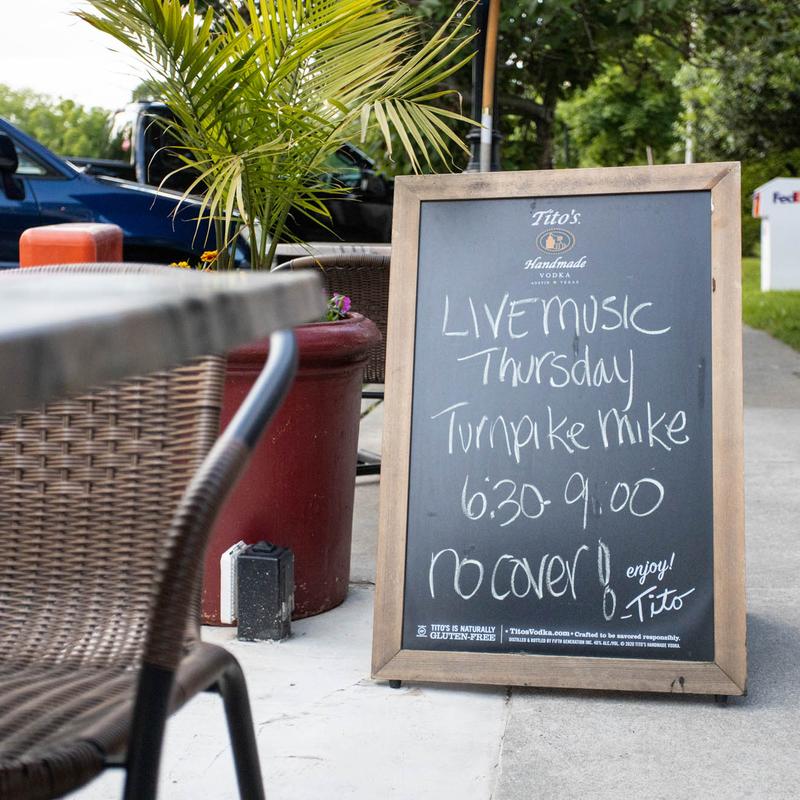 Tito's
Handmade
VODKA
AUSTIN TEXAS
LIVE MUSIC
Thursday
Turnpike Mike
6:30-9:00
no cover!
enjoy!
-Tito
TITO'S IS NATURALLY
GLUTEN-FREE
• TitosVodka.com • Crafted to be savored responsibly.
DISTILLED & BOTTLED BY FIFTH GENERATION INC. 40% ALC./VOL. © 2020 TITO'S HANDMADE VODKA.
FedE